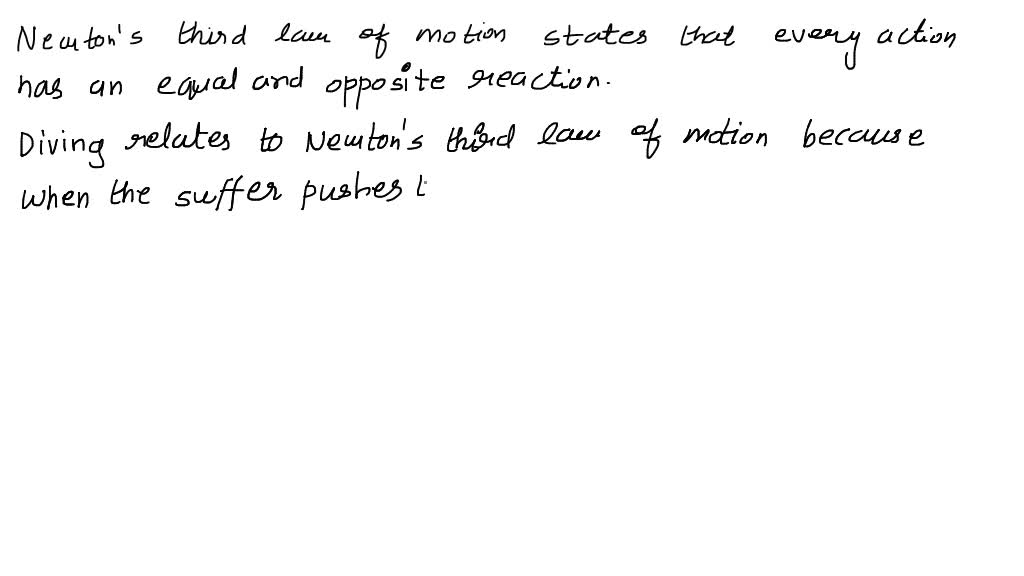 Newton's third law of motion states that every action
has an equal and opposite reaction.
Diving relates to Newton's third law of motion because
when the suffer pushes t